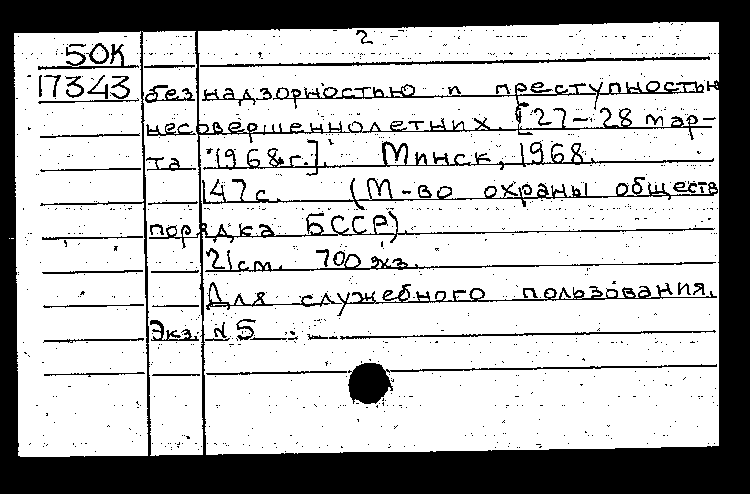 2
50К
17343 безнадзорностью и преступностью
несовершеннолетних. [27-28 мар-
та 1968г.]. Минск, 1968.
147с. (М-во охраны обществ
порядка БССР).
21см. 700 экз.
Для служебного пользования.
Экз. №5.